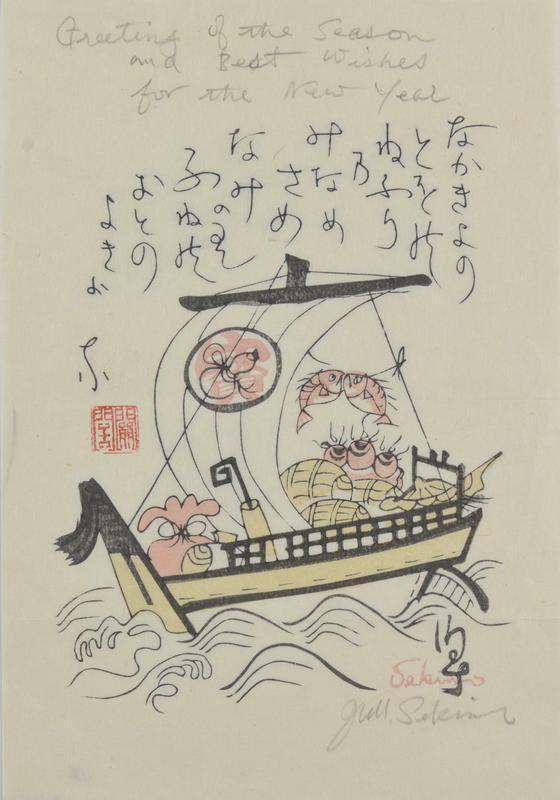 Greeting of the Season
and Best Wishes
for the New Year
なかきよの
とをの
ねふり
乃
みなめ
さめ
なみ
のり
ふねの
おとの
よきか
な
Sekino
Jun. Sekino